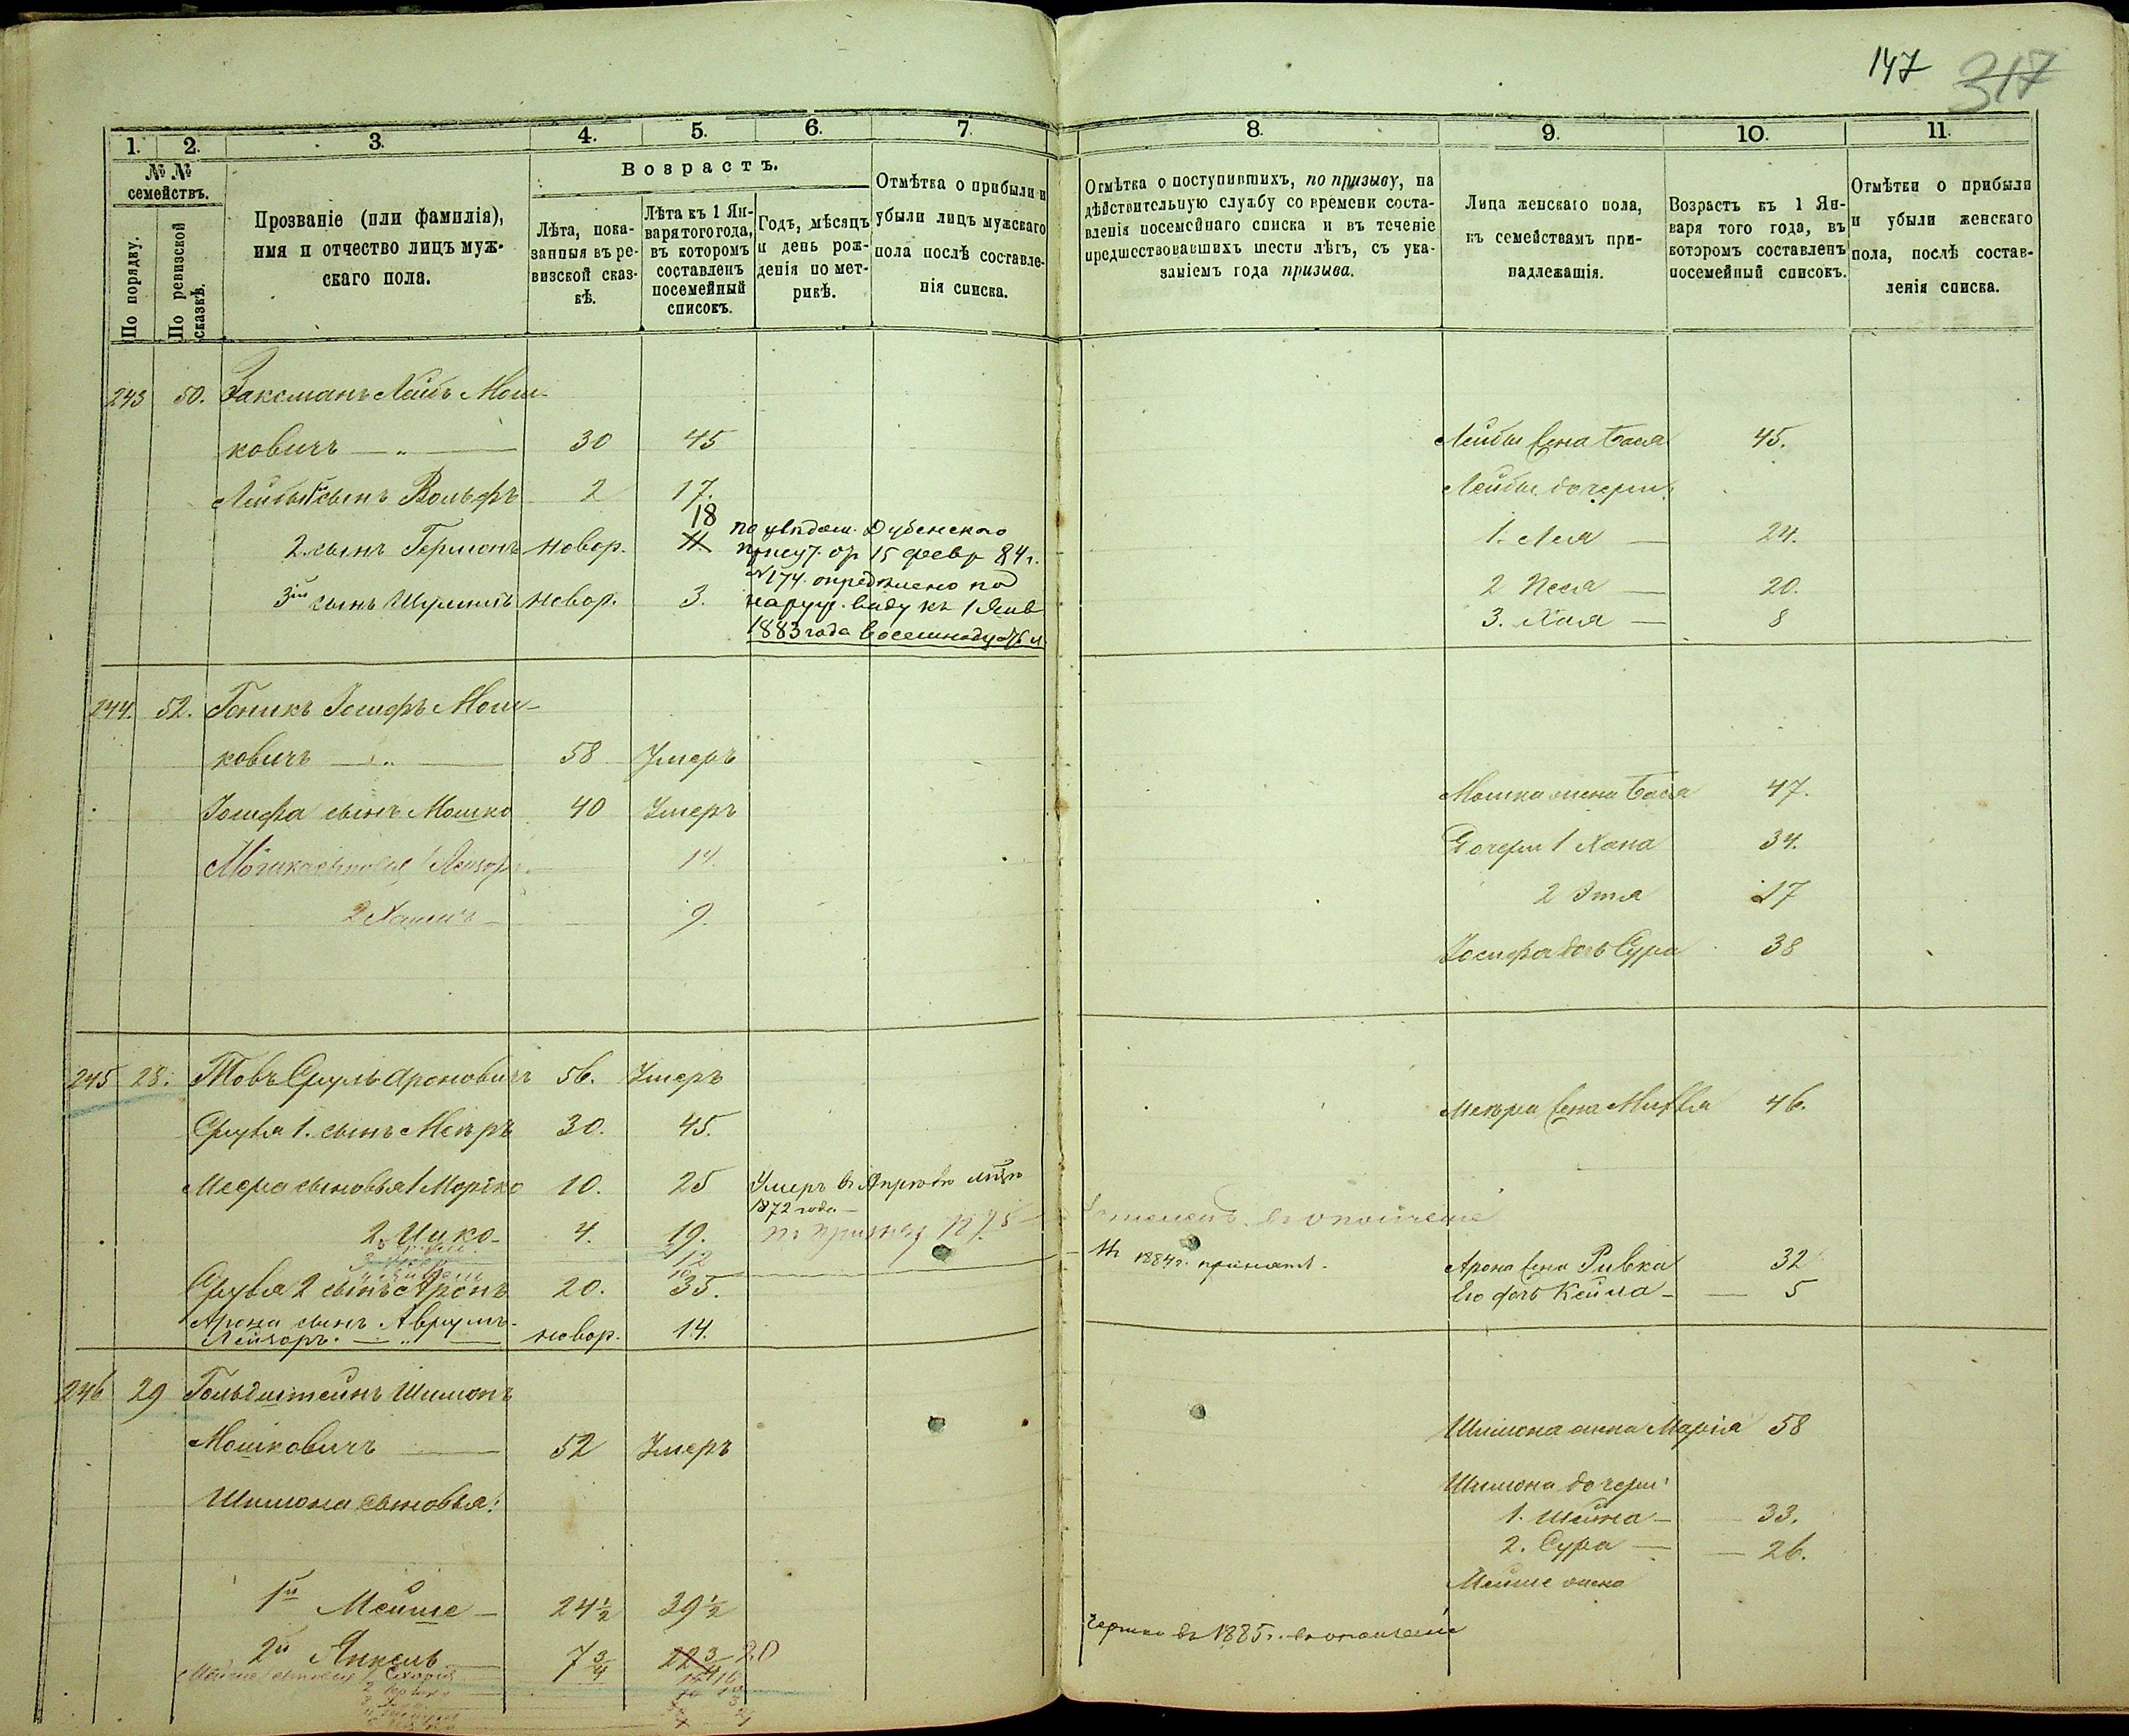 147 317
1. 2. 3. 4. 5. 6. 7.
№ № семействъ.
По порядку.
По ревизской сказкѣ.
Прозваніе (или фамилія),
имя и отчество лицъ муж-
скаго пола.
Возрастъ.
Лѣта, пока-
занныя въ ре-
визской сказ-
кѣ.
Лѣта къ 1 Ян-
варя того года,
въ которомъ
составленъ
посемейный
списокъ.
Годъ, мѣсяцъ
и день рож-
денія по мет-
рикѣ.
Отмѣтка о прибыли и
убыли лицъ мужскаго
пола послѣ составле-
нія списка.
243 50. Заксманъ Лейбъ Мош-
ковичъ — „ — 30 45
Лейбы 1й сынъ Вольфъ 2 17.
18
2. сынъ Гершонъ новор. 11
по увѣдом. Дубенскаго
присут. от 15 февр 84 г.
№ 174. опредѣлено по
наруж. виду къ 1 Янв
1883 года восемнадцать л.
3й сынъ Шулимъ новор. 3.
244. 52. Гоникъ Іосифъ Мош-
ковичъ — „ — 58 Умеръ
Іосифа сынъ Мошко 40 Умеръ
Мошка сыновья 1 Лейзоръ 14.
2 Хаимъ — 9.
245 28. Товъ Сруль Ароновичъ 56. Умеръ
Сруля 1. сынъ Мееръ 30. 45.
Меера сыновья 1 Мортко 10. 25 Умеръ въ Апрѣлѣ мцѣ
1872 года —
2. Ицко — 4. 19. по призыву 1875
12
Сруля 2 сынъ Аронъ 20. 35.
Арона сынъ Аврумъ-
Лейзоръ. — „ — новор. 14.
246 29 Гольдштейнъ Шимонъ
Мошковичъ — 52 Умеръ
Шимона сыновья:
1й Мейше — 24½ 39½
2й Янкель 7¾ 22¾ 20
Мейше сыновья 1
8. 9. 10. 11.
Отмѣтка о поступившихъ, по призыву, на
дѣйствительную службу со времени соста-
вленія посемейнаго списка и въ теченіе
предшествовавшихъ шести лѣтъ, съ ука-
заніемъ года призыва.
Лица женскаго пола,
къ семействамъ при-
надлежащія.
Возрастъ къ 1 Ян-
варя того года, въ
которомъ составленъ
посемейный списокъ.
Отмѣтки о прибыли
и убыли женскаго
пола, послѣ состав-
ленія списка.
Лейбы жена Бася 45.
Лейбы дочери:
1. Лея — 24.
2 Песя — 20.
3. Хая — 8
Мошка жена Бася 47.
Дочери 1 Хана 34.
2 Этя 17
Іосифа дочь Сура 38
Меера жена 46.
зачисленъ въ ополченіе
1884 г. принятъ.
Арона жена Ривка 32
Его дочь Кейла — 5
Шимона жена Марія 58
Шимона дочери:
1. Шейна — 33.
2. Сура — 26.
Мейше жена
въ 1885 г. въ ополченіе